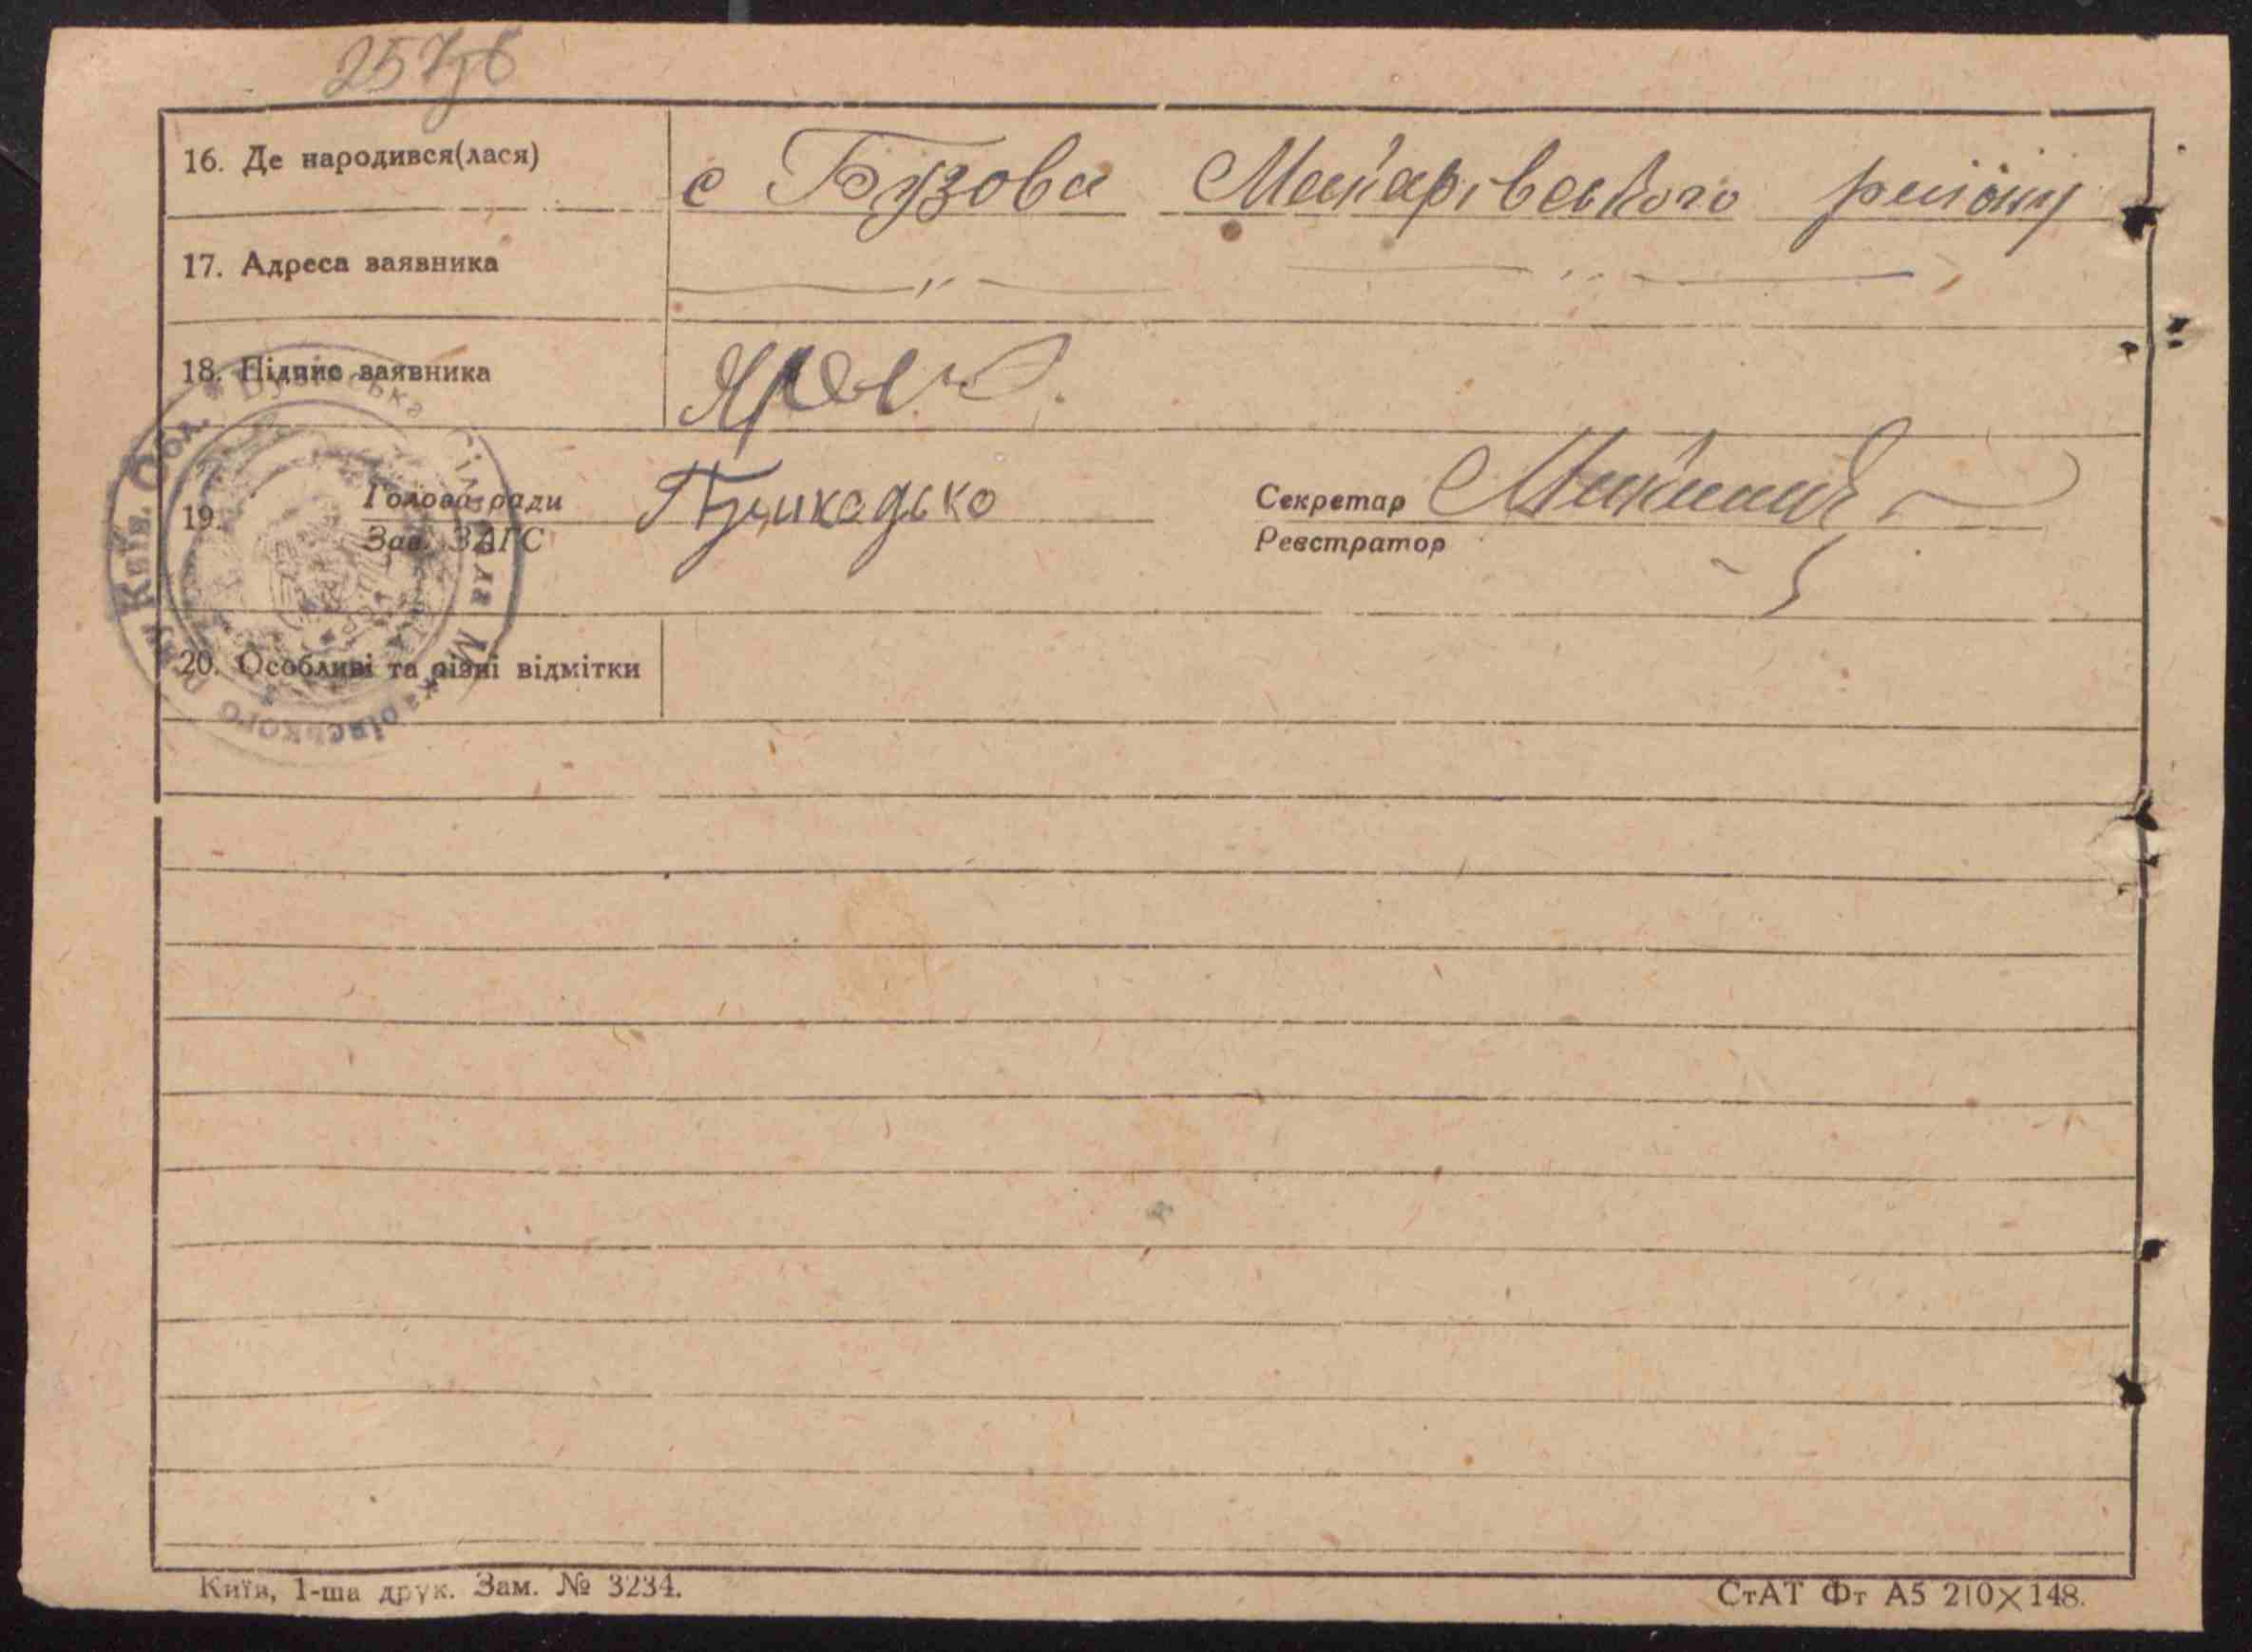 16. Де народився(лася) с Бузова Макарівського району
17. Адреса заявника — " — — " —
18. Підпис заявника
19. Голова ради Секретар
Зав. ЗАГС Реєстратор
20. Особливі та різні відмітки
Бузівська Сільрада Макарівського р-ну Київ. Обл.
Київ, 1-ша друк. Зам. № 3234.
СтАТ Фт А5 210×148.